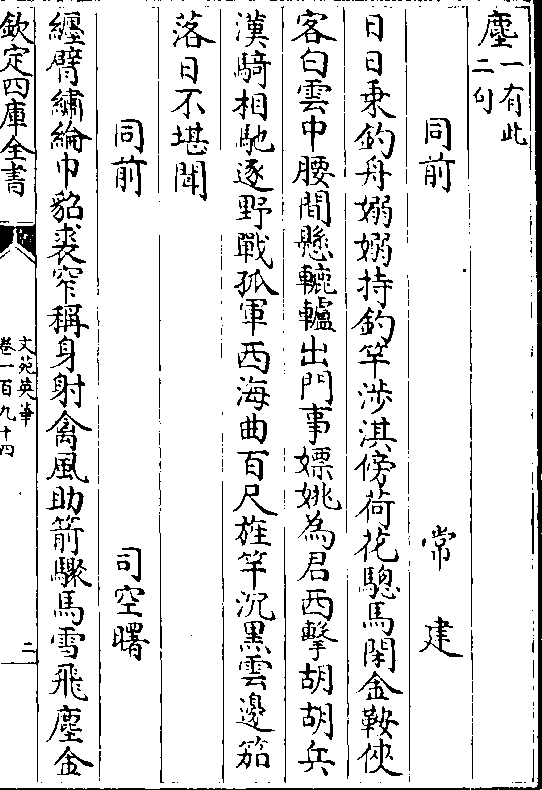 塵一有此二句
同前 常建
日日乗釣舟嫋嫋持釣竿涉淇傍荷花驄馬閑金鞍俠
客白雲中腰間懸轆轤出門事嫖姚為君西擊胡胡兵
漢騎相馳逐野戰孤軍西海曲百尺旌竿沉黑雲邊笳
落日不堪聞
同前 司空曙
纏臂繡綸巾貂裘窄稱身射禽風助箭驟馬雪飛塵金
欽定四庫全書
文苑英華
卷一百九十四
二